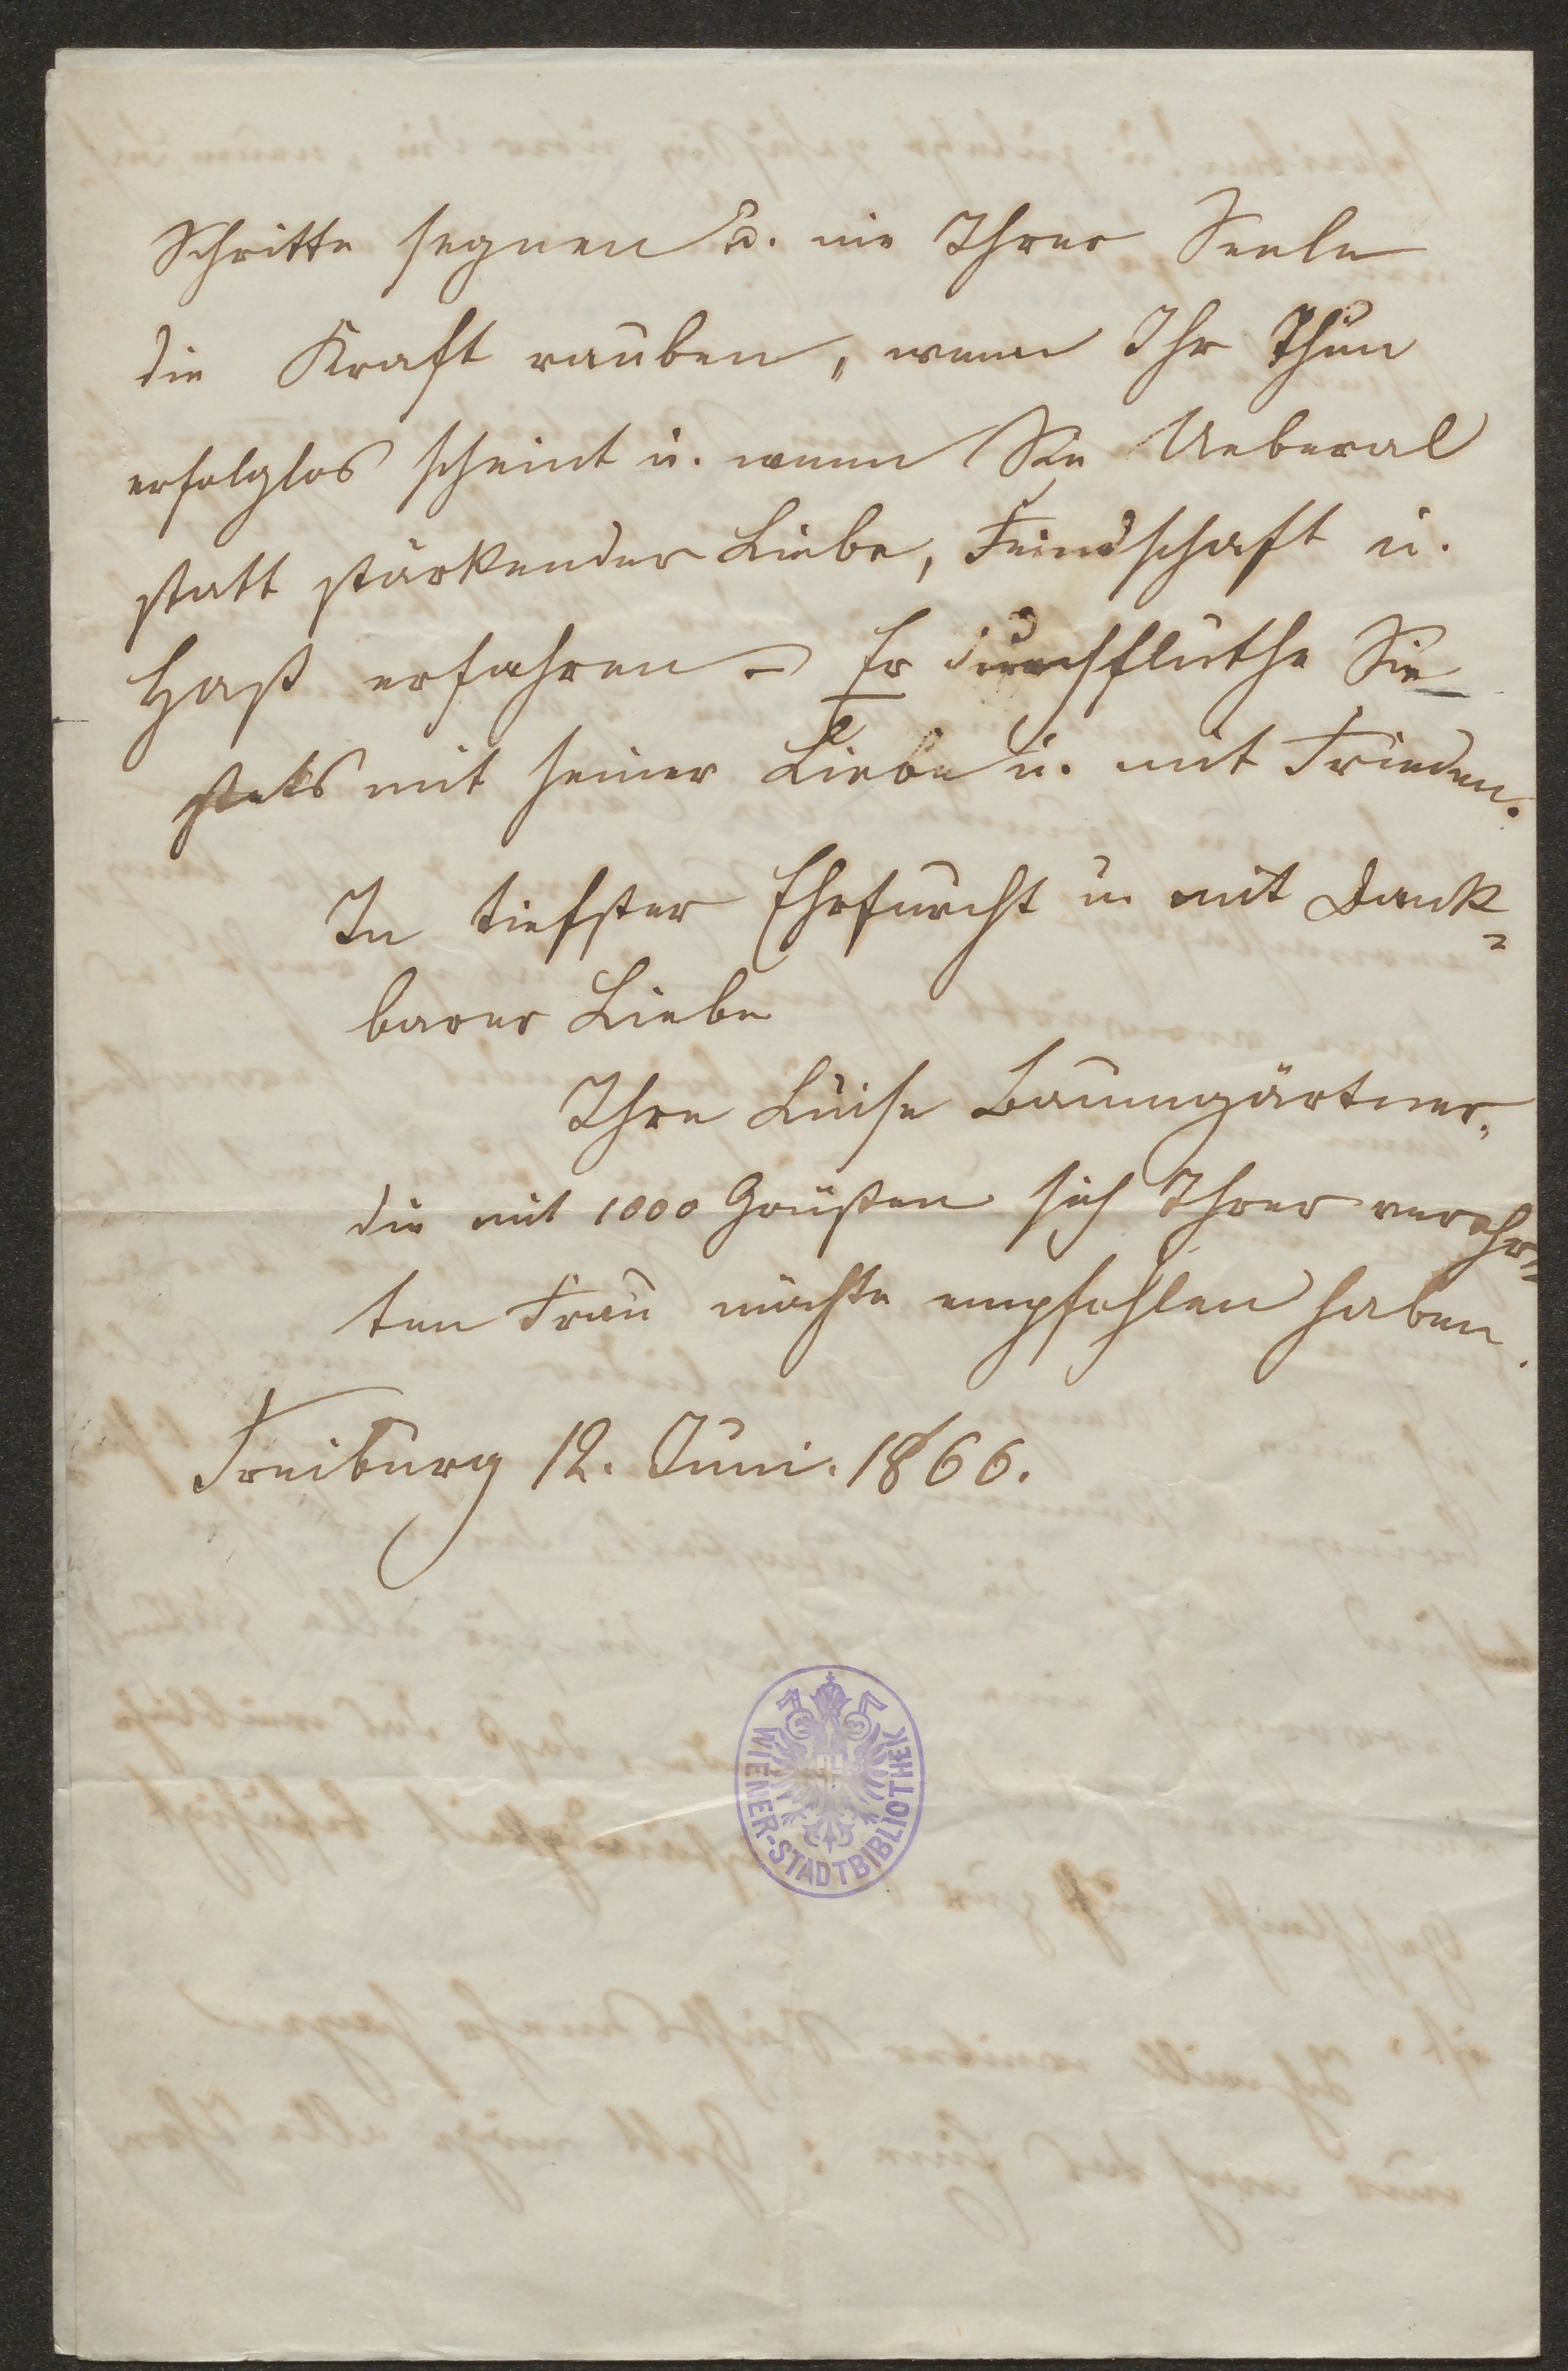 Schritte segnen u. nie Ihrer Seele
die Kraft rauben, wenn Ihr Thun
erfolglos scheint u. wenn Sie Ueberal
statt stärkender Liebe, Feindschaft u.
Haß erfahren – Er durchfluthe Sie
stets mit seiner Liebe u. mit Frieden.
In tiefster Ehrfurcht u. mit Dank=
barer Liebe
Ihre Luise Baumgärtner,
die mit 1000 Grüßen sich Ihrer verehr=
ten Frau möchte empfohlen haben.
Freiburg 12. Juni. 1866.
WIENER-STADTBIBLIOTHEK